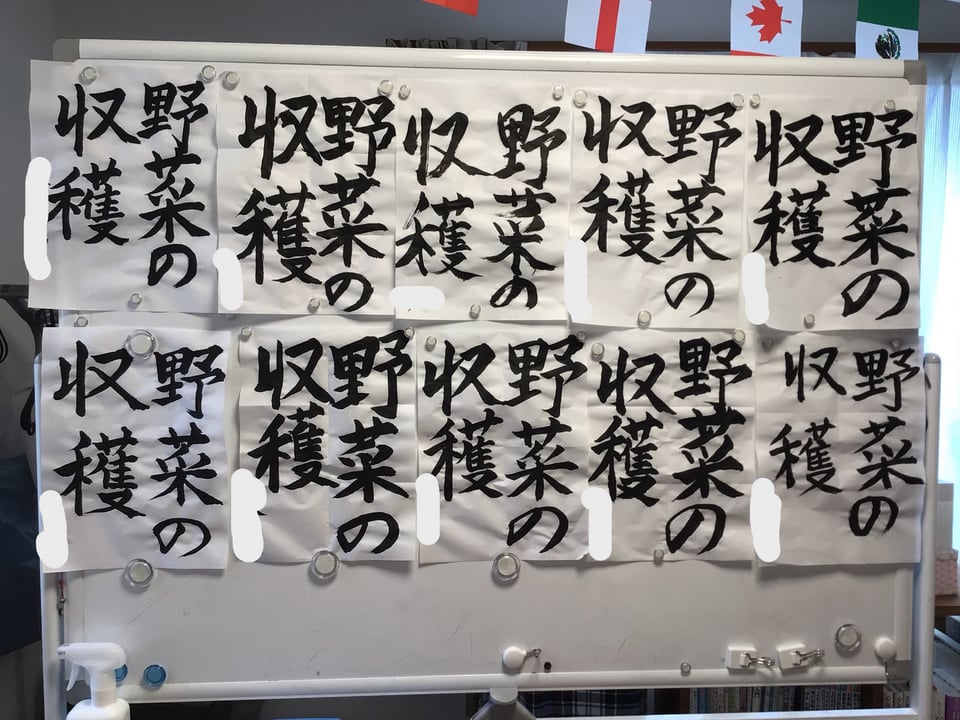 野菜の
収穫
野菜の
収穫
野菜の
収穫
野菜の
収穫
野菜の
収穫
野菜の
収穫
野菜の
収穫
野菜の
収穫
野菜の
収穫
野菜の
収穫